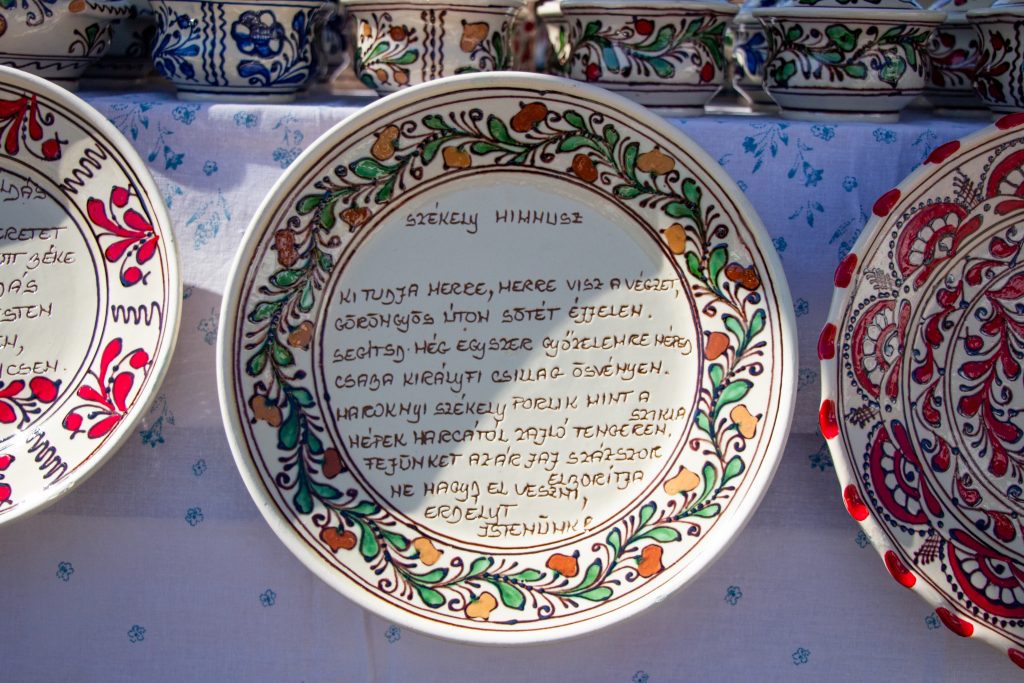 LDÁS
ERETET
OTT BÉKE
DÁS
ISTEN
EN,
NCSEN.
SZÉKELY HIMNUSZ
KI TUDJA MERRE, MERRE VISZ A VÉGZET,
GÖRÖNGYÖS ÚTON SÖTÉT ÉJJELEN.
SEGÍTSD MÉG EGYSZER GYŐZELEMRE NÉPED
CSABA KIRÁLYFI CSILLAG ÖSVÉNYEN.
MAROKNYI SZÉKELY PORLIK MINT A
SZIKLA
NÉPEK HARCÁTÓL ZAJLÓ TENGEREN,
FEJÜNKET AZ ÁR JAJ SZÁZSZOR
ELBORÍTJA
NE HAGYD EL VESZNI,
ERDÉLYT
ISTENÜNK!